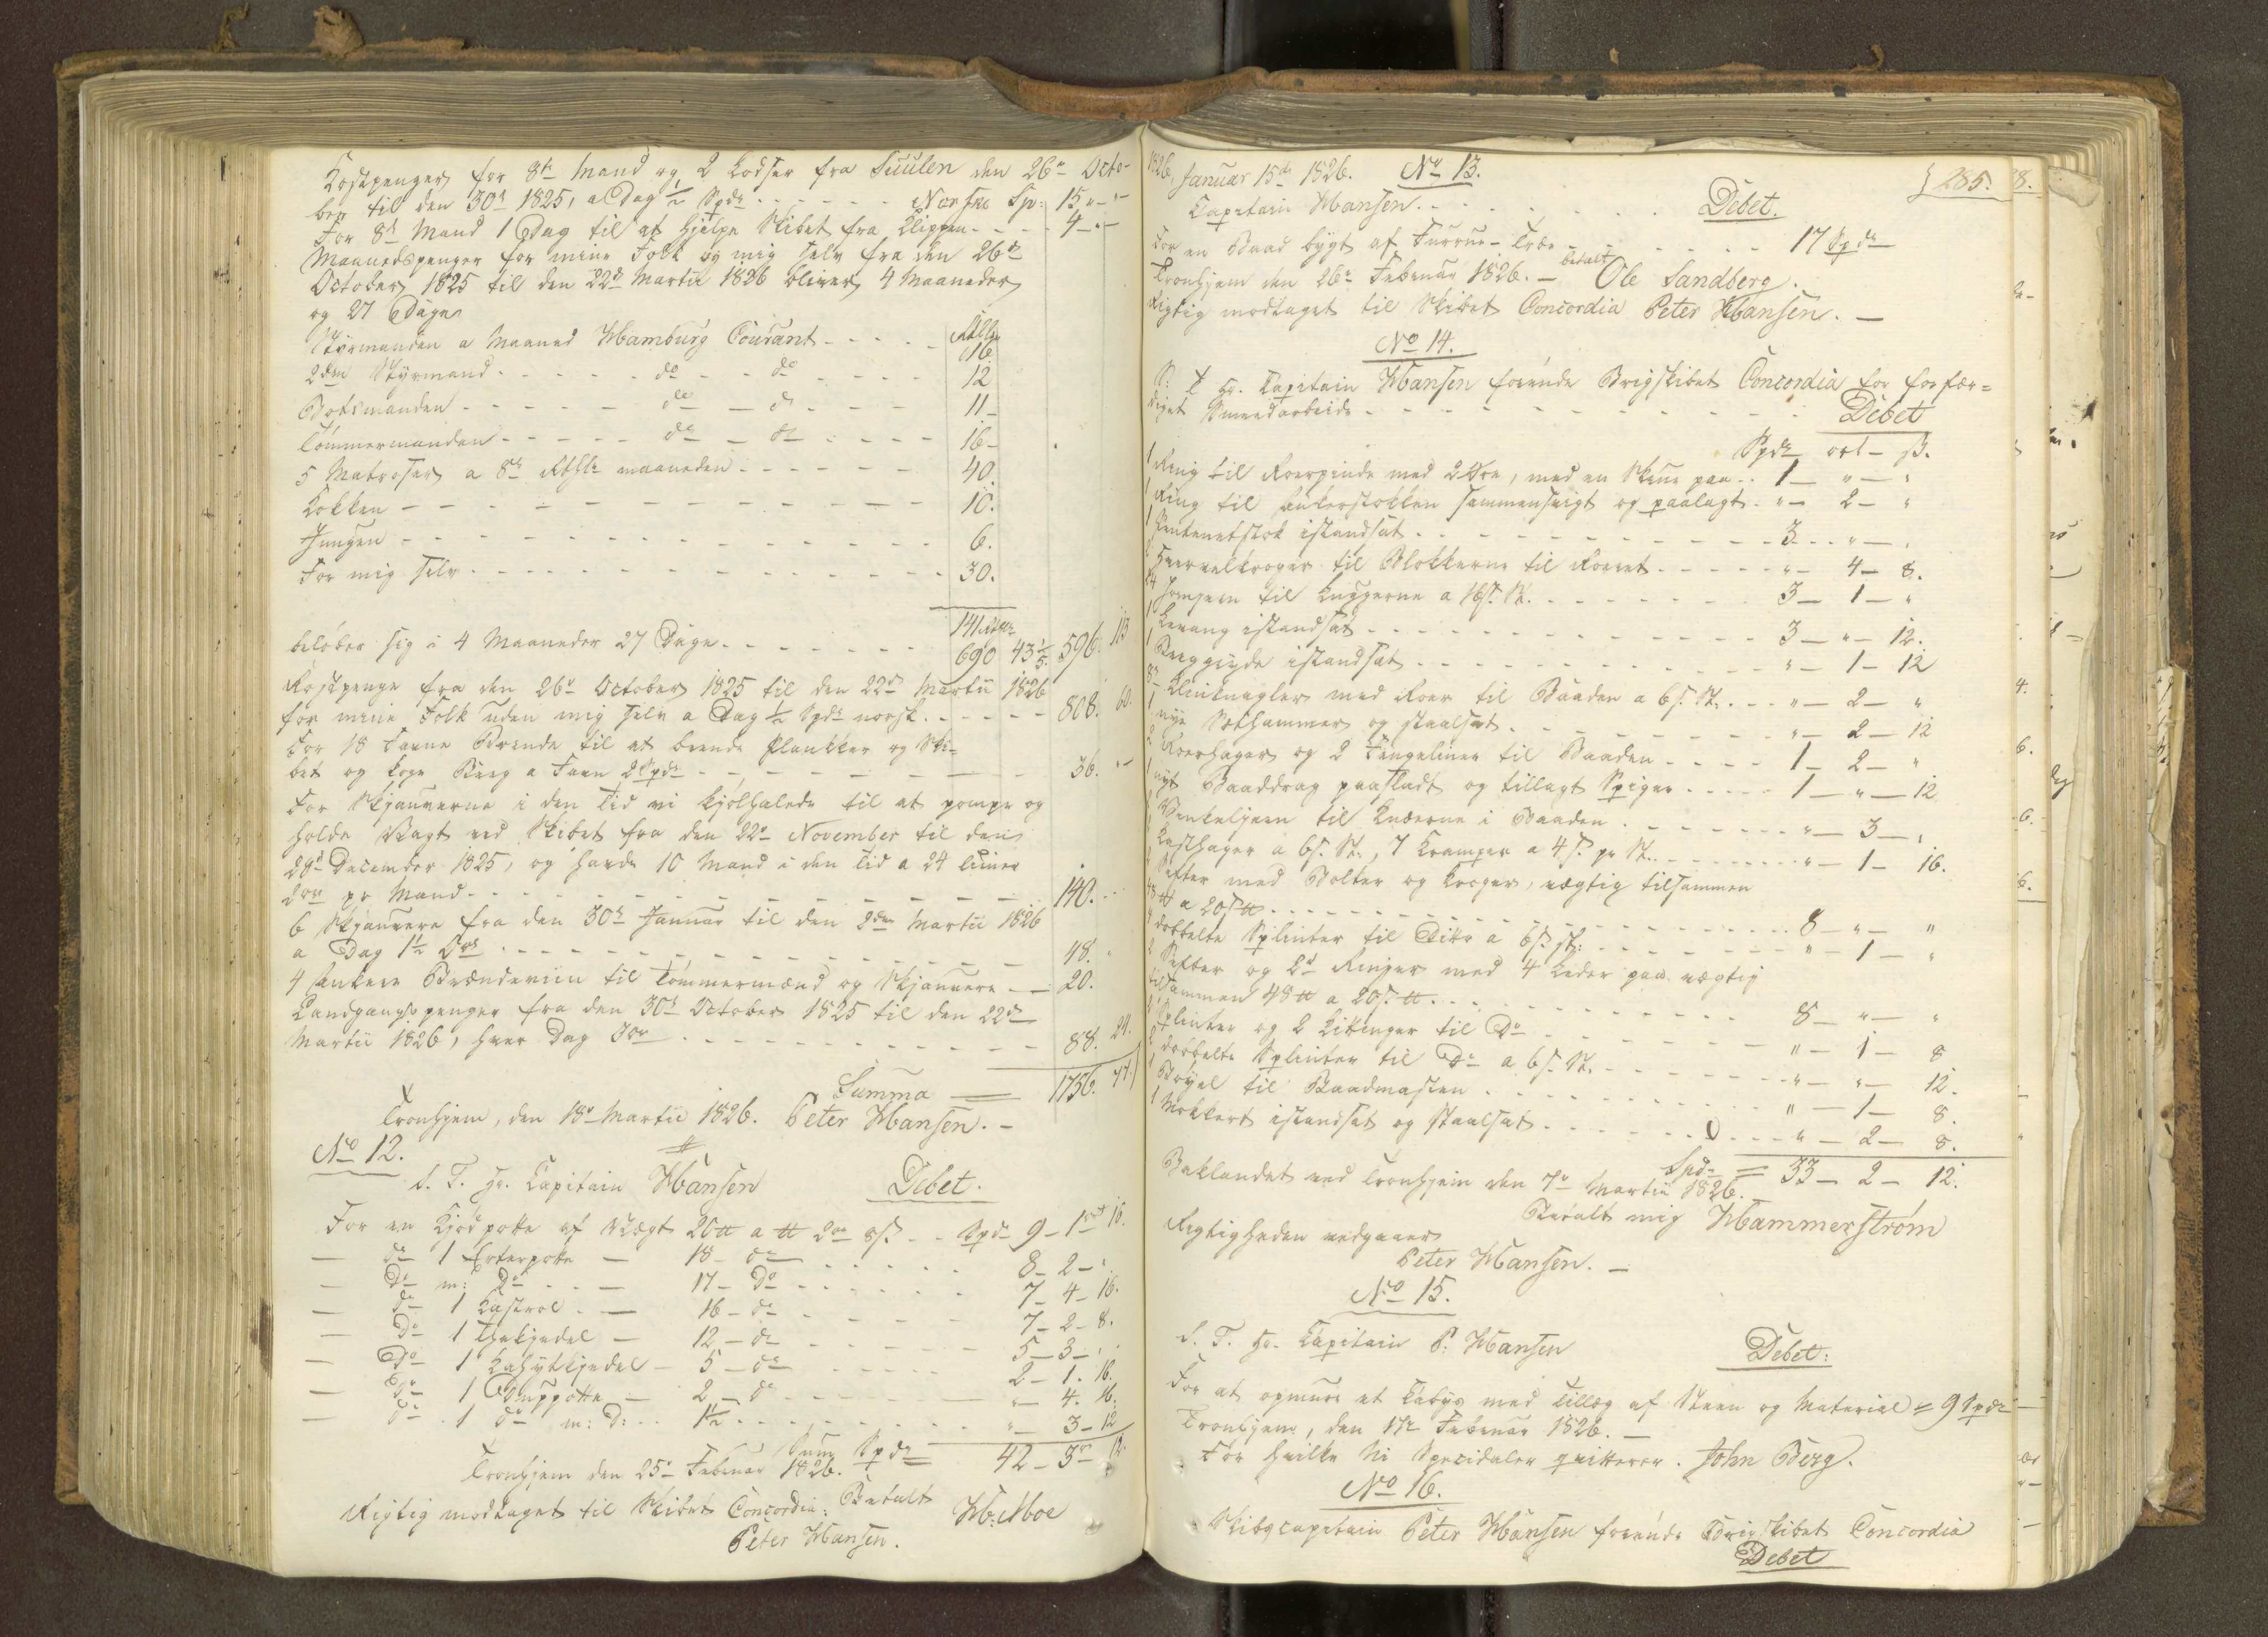 Kostpenger for 8te Mand og 2 Lodser fra Suulen den 26de Octo-
ber til den 30te 1825, a Dag ½ Spdr - - - Norske Sp: 15 „ - „ -
For 8te Mand 1 Dag til at hjelpe Skibet fra Klippen - - - 4 - „ -
Maanedspenger for mine Folk og mig selv fra den 26de
October 1825 til den 22de Martii 1826 bliver 4 Maaneder
og 27 Dage
Styrmanden a Maaned Hamburg Courant - - - - 16
2den Styrmand - - - do - - do - - - 12
Botsmanden - - - do - do - - - 11 -
Tømmermanden - - - do - do - - - 16 -
5 Matroser a 8te maaneden - - - 40.
Kokken - - - 10.
Jungen - - - 6.
For mig selv - - - 30.
141
beløber sig i 4 Maaneder 27 Dage - - - 690 43⅕ 596. 113
Kostpenge fra den 26de October 1825 til den 22de Martii 1826
for mine Folk uden mig selv a Dag ½ Spdr norsk - - - 808. 60.
For 18 Favne Brende til at brende Plankker og Ski-
bet og koge Beeg a Favn 2 Spdr - - - 36. „ -
For Skjauverne i den Tid vi kjølhalede til at pompe og
holde Vagt ved Skibet fra den 22de November til den
28de December 1825, og havde 10 Mand i den Tid a 24 timer
2 ort pr Mand - - - 140. - -
6 Skjauvere fra den 30te Januar til den 2den Martii 1826
a Dag 1½ Ort - - - 48. „
4 Ankere Brændeviin til Tømmermænd og Skjauvere - - 20.
Landgangspenger fra den 30te October 1825 til den 22de
Martii 1826, hver Dag 3 ort - - - 88. 24.
Summa = 1756. 77.
Tronhjem, den 18de Martii 1826. Peter Hansen. -
No 12.
S. T. Hr. Capitain Hansen Debet.
For en Kjødpotte af Vægt 20 ℔ a ℔ 2 ort 8 ß. - - Spdr 9 - 1 ort 16.
- do 1 Erterpotte - 18 - do - - - 8 - 2 - „
- Do m: Do - - - 17 - Do - - - 7 - 4 - 16.
- do 1 Kastrol - - 16 - do - - - 7 - 2 - 8.
- Do 1 Theekjedel - 12 - do - - - 5 - 3 - „
- Do 1 Kahytkjedel - 5 - do - - - 2 - 1. 16.
- Do 1 Suppotte - 2 - do - - - „ - 4. 16.
- do 1 do m: D: - - 1½ - - - „ - 3 - 12
Sum Spdr = 42 - 3 ort 12.
Tronhjem den 25de Februar 1826.
Rigtig modtaget til Skibet Concordia. Betalt H: Moe
Peter Hansen.
1826, Januar 15de 1826. No 13. 285.
Capitain Hansen - - - Debet.
For en Baad bygt af Furrue-Træe - - - 17 Spdr
Tronhjem den 26de Februar 1826. - betalt Ole Sandberg.
Rigtig modtaget til Skibet Concordia Peter Hansen. -
No 14.
S: T Hr. Capitain Hansen førende Brigskibet Concordia for forfær-
diget Smeedarbeide - - - Debet
Spdr ort - ß.
1 Ring til Roerpinde med 2 Øre, med en Skinne paa - - 1 - „ - „
1 Ring til ankerstokken sammensveigt og paalagt - „ - 2 - „
1 istandsat - - - 3 - - „ - „
til Blokkerne til Roeret - - - „ - 4 - 8.
24 til Luggerne a 16 ß. St. - - - 3 - 1 - „
1 istandsat - - - 3 - „ - 12.
1 Beeggryde istandsat - - - „ - 1 - 12
8te Klinknagler med Roer til Baaden a 6 ß. St. - - - „ - 2 - „
1 nye Sæthammer og staalsat - - - „ - 2 - 12
2 Roerhager og 2 Fingeliner til Baaden - - - 1 - 2 - „
1 nyt Baaddrag paasladt og tillagt Spiger - - - 1 - „ - 12
Vinkeljern til Knæerne i Baaden - - - „ - 3 - „
Kasthager a 6 ß. St., 7 Kramper a 4 ß. pr St. - - - „ - 1 - 16.
Sefter med Bolter og Kroger, vægtig tilsammen
48 ℔ a 20 ß ℔ - - - 8 - „ - „
4 dobbelte Splinter til Ditto a 6 ß. st: - - - „ - 1 - „
2 Sefter og 2de Ringer med 4 Leder paa vægtig
tilsammen 48 ℔ a 20 ß. ℔ - - - 8 - „ - „
Splinter og 2 til Do - - - „ - 1 - 8
2 dobbelte Splinter til Do a 6 ß. St. - - - „ - „ - 12.
1 Bøyel til Baadmasten - - - „ - 1 - 8.
1 Mokkert istandsat og staalsat - - - „ - 2 - 8.
Spdr = 33 - 2 - 12.
Baklandet ved Tronhjem den 7de Martii 1826.
Betalt mig Hammerstrøm
Rigtigheden vedgaaer
Peter Hansen. -
No 15.
S. T. Hr. Capitain P. Hansen Debet:
For at opmure et Kabys med Tillæg af Steen og Material = 9 Spdr -
Tronhjem, den 17de Februar 1826. -
For hvilke Ni Speciedaler qvitterer. John Berg.
No 16.
Skibscapitain Peter Hansen førende Brigskibet Concordia
Debet